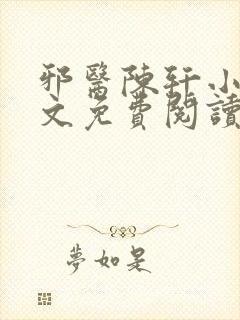 邪醫陳軒小
文免費閱讀
夢如是